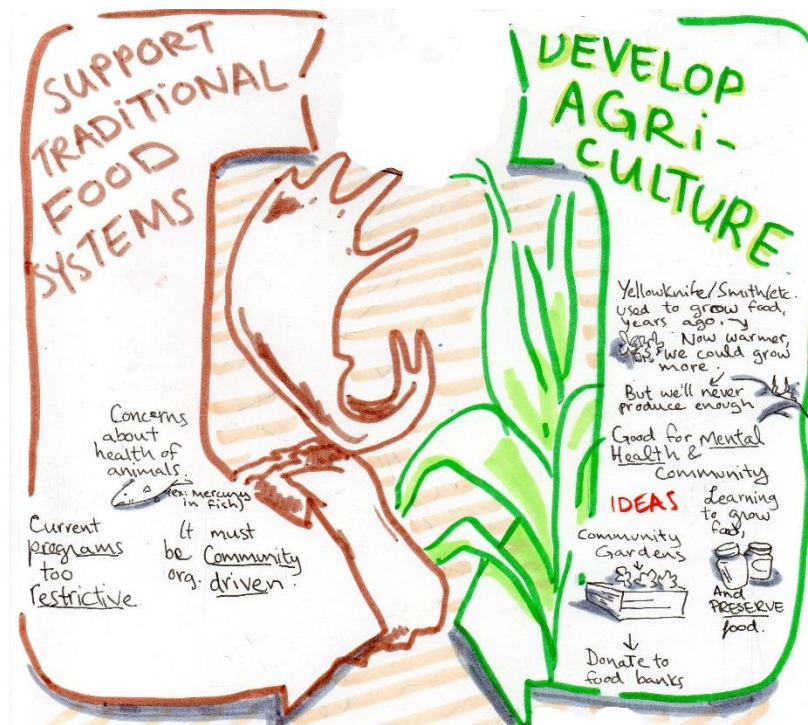 SUPPORT
TRADITIONAL
FOOD
SYSTEMS
Concerns
about
health of
animals.
(ex: Mercury
in fish)
Current
programs
too
restrictive
It must
be Community
org. driven.
DEVELOP
AGRI-
CULTURE
Yellowknife/Smith/etc.
used to grow food,
years ago.
Now warmer,
we could grow
more.
But we'll never
produce enough
Good for Mental
Health &
Community
IDEAS
Community
Gardens
Donate to
food banks
Learning
to grow
food,
And
PRESERVE
food.